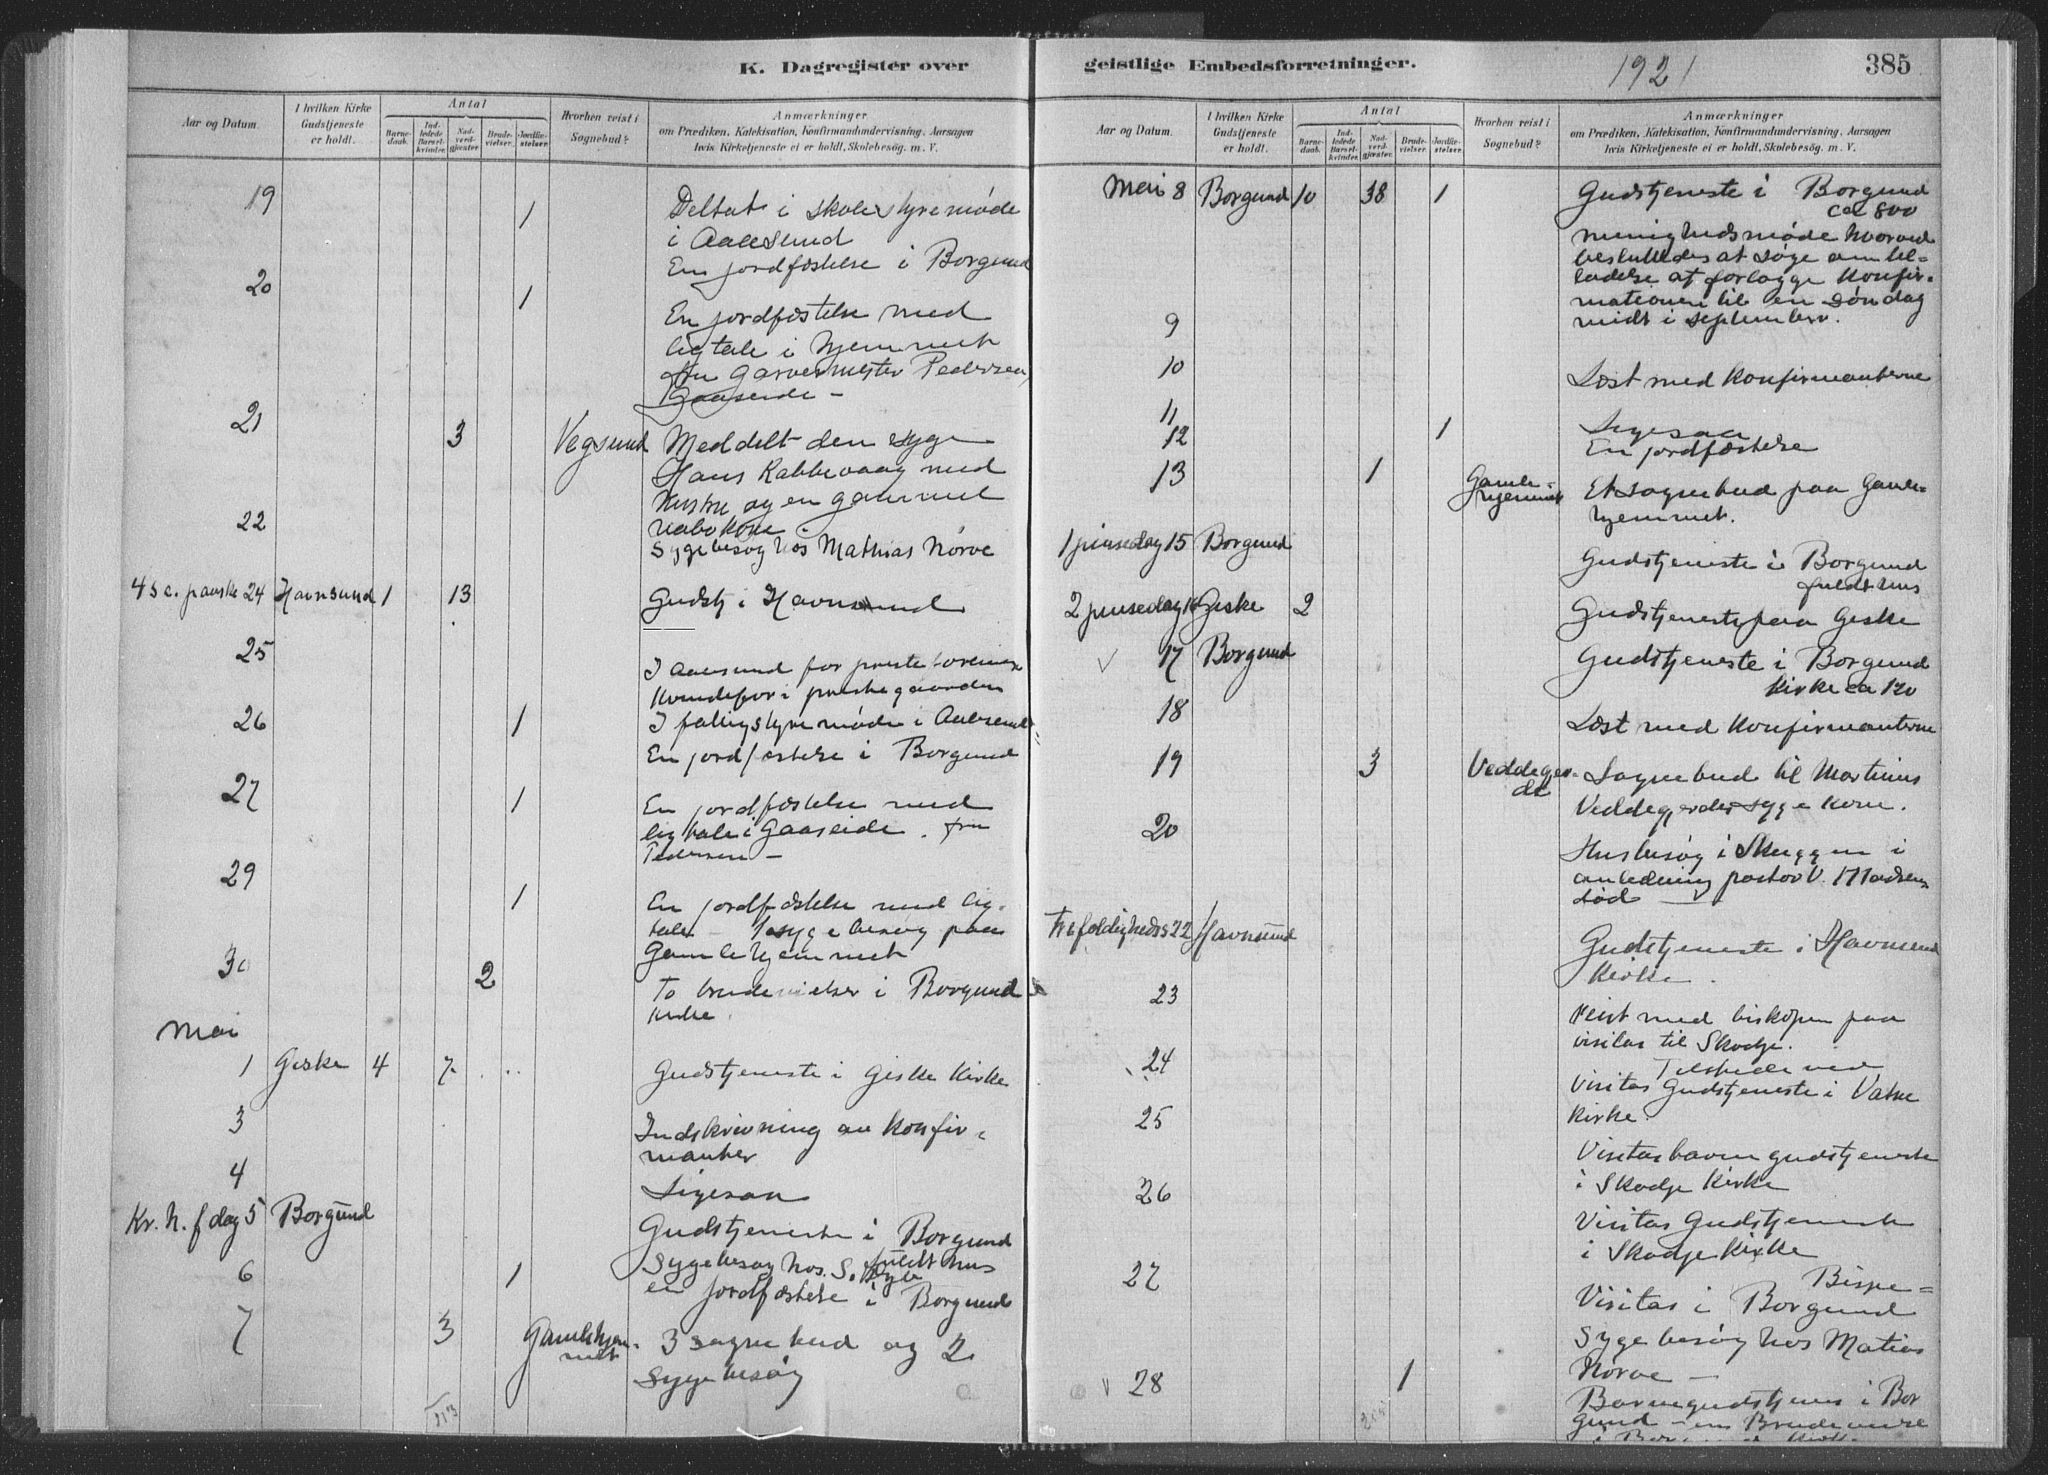 K. Dagregister over
Aar og Datum.
I hvilken Kirke Gudstjeneste er holdt.
Antal
Barne-daab.
Ind-ledede Barsel-kvinder.
Nad-verd-gjester
Brude-vielser.
Jordfæ-stelser.
Hvorhen reist i Sognebud?
Anmærkninger
om Prædiken, Katekisation, Konfirmandundervisning, Aarsagen
hvis Kirketjeneste ei er holdt, Skolebesög. m. V.
19 1 Deltat i skolestyremøde
i Aalesund
En jordfæstelse i Borgund
20 1 En jordfæstelse med
ligtale i hjemmet
fru Garvermester Pedersen,
Gaaseide –
21 3 Vegsund Meddelt den syge
Hans Rabbevaag med
hustru og en gammel
nabokone.
22 Sygebesøg hos Mathias Nörve
4 s e. paaske 24 Havnsund 1 13 Gudstj i Havnsund
25 I Aalesund for presteforening
Kvindefor i prestegaarden
26 1 I fattigstyremøde i Aalesund
En jordfæstelse i Borgund
27 1 En jordfæstelse med
ligtale i Gaaseide. fru
Pedersen –
29 1 En jordfæstelse med lig-
tale – 1 sygebesøg paa
Gamlehjemmet
30 2 To brudevielser i Borgund
kirke.
Mai
1 Giske 4 7 Gudstjeneste i Giske Kirke
3 Indskrivning av Konfir-
manter
4 Ligesaa
Kr. h. f dag 5 Borgund Gudstjeneste i Borgund
fuldt hus
6 1 Sygebesøg hos S.
en jordfæstelse i Borgund
7 3 Gamlehjem-
met 3 sognebud og 2
Sygebesøg
213
geistlige Embedsforretninger.
1921
385
Aar og Datum.
I hvilken Kirke Gudstjeneste er holdt.
Antal
Barne-daab.
Ind-ledede Barsel-kvinder.
Nad-verd-gjester
Brude-vielser.
Jordfæ-stelser.
Hvorhen reist i Sognebud?
Anmærkninger
om Prædiken, Katekisation, Konfirmandundervisning, Aarsagen
hvis Kirketjeneste ei er holdt, Skolebesög. m. V.
Mai 8 Borgund 10 38 1 Gudstjeneste i Borgund
ca 800
menighedsmøde hvorved
besluttedes at søge om til-
ladelse at forlægge Konfir-
mationen til en søndag
midt i september.
9
10 Læst med Konfirmanterne
11 Ligesaa
12 1 En jordfæstelse
13 1 Gamle-
hjemmet Et sognebud paa Gamle-
hjemmet.
1 pinsedag 15 Borgund Gudstjeneste i Borgund
fuldt hus
2 pinsedag 16 Giske 2 Gudstjeneste paa Giske
17 Borgund Gudstjeneste i Borgund
Kirke ca 120
18 Læst med Konfirmanterne
19 3 Veddegjer-
de Sognebud til Martinus
Veddegjerdes syge kone.
20 Husbesøg i Skuggen i
anledning pastor V. Madsens
død –
Trefoldigheds s 22 Havnsund Gudstjeneste i Havnsund
Kirke.
23 Reist med biskopen paa
visitas til Skodje.
24 Tilstede ved
Visitas Gudstjeneste i Vatne
Kirke.
25 Visitas barnegudstjeneste
i Skodje Kirke
26 Visitas Gudstjeneste
i Skodje Kirke
27 Bispe-
Visitas i Borgund
Sygebesøg hos Matias
Nörve –
28 1 Barnegudstjenes i Bor
gund – en Brudevielse